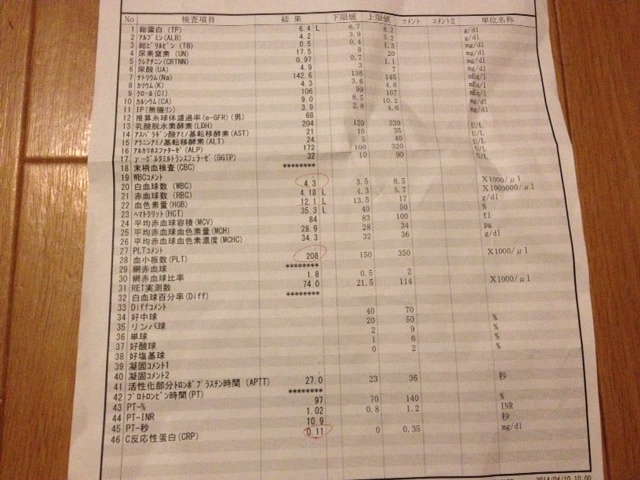 No 検査項目 結果 下限値 上限値 コメント コメント2 単位名称
1 総蛋白(TP) 6.4 L 6.7 8.2 g/dl
2 アルブミン(ALB) 4.2 3.9 5.2 g/dl
3 総ビリルビン(TB) 0.5 0.4 1.3 mg/dl
4 尿素窒素(UN) 17.5 8 20 mg/dl
5 クレアチニン(CRTNN) 0.97 0.7 1.1 mg/dl
6 尿酸(UA) 4.9 3 7 mg/dl
7 ナトリウム(Na) 142.6 136 145 mEq/l
8 カリウム(K) 4.3 3.6 4.8 mEq/l
9 クロール(Cl) 106 99 mEq/l
10 カルシウム(CA) 9.0 8.5 10.2 mg/dl
11 IP(無機リン) 3.9 2.8 4.6 mg/dl
12 推算糸球体濾過率(e-GFR)(男) 68
13 乳酸脱水素酵素(LDH) 204 120 220 U/L
14 アスパラギン酸アミノ基転移酵素(AST) 21 10 35 U/L
15 アラニンアミノ基転移酵素(ALT) 24 5 40 U/L
16 アルカリホスファターゼ(ALP) 172 100 320 U/L
17 γ-グルタミルトランスフェラーゼ(GGTP) 32 10 90 U/L
18 末梢血検査(CBC) ********
19 WBCコメント
20 白血球数(WBC) 4.3 3.5 8.5 X1000/μl
21 赤血球数(RBC) 4.18 L 4.3 5.7 X1000000/μl
22 血色素量(HGB) 12.1 L 13.5 17 g/dl
23 ヘマトクリット(HCT) 35.3 L 40 50 %
24 平均赤血球容積(MCV) 84 83 100 fl
25 平均赤血球血色素量(MCH) 28.9 28 34 pg
26 平均赤血球血色素濃度(MCHC) 34.3 32 36 g/dl
27 PLTコメント
28 血小板数(PLT) 208 150 350 X1000/μl
29 網赤血球 ********
30 網赤血球比率 1.8 0.5 2
31 RET実測数 74.0 21.5 114 X1000/μl
32 白血球百分率(Diff) ********
33 Diffコメント
34 好中球 40 70 %
35 リンパ球 20 50 %
36 単球 2 9 %
37 好酸球 1 6 %
38 好塩基球 0 2 %
39 凝固コメント1
40 凝固コメント2
41 活性化部分トロンボプラスチン時間(APTT) 27.0 23 36 秒
42 プロトロンビン時間(PT) ********
43 PT-% 97 70 140 %
44 PT-INR 1.02 0.8 1.2 INR
45 PT-秒 10.9 秒
46 C反応性蛋白(CRP) 0.11 0 0.35 mg/dl
2014/04/10 10:00